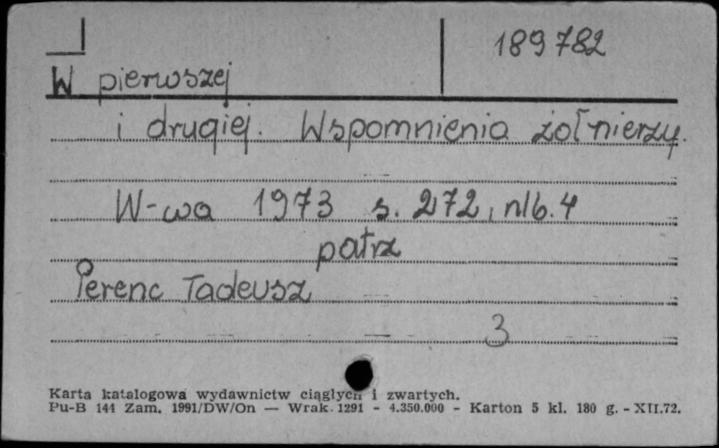 189782
W pierwszej
i drugiej. Wspomnienia żołnierzy.
W-wa 1973 s. 272, nlb. 4
patrz
Perenc Tadeusz
3
Karta katalogowa wydawnictw ciągłych i zwartych.
Pu-B 144 Zam. 1991/DW/On — Wrak. 1291 - 4.350.000 - Karton 5 kl. 180 g. - XII.72.